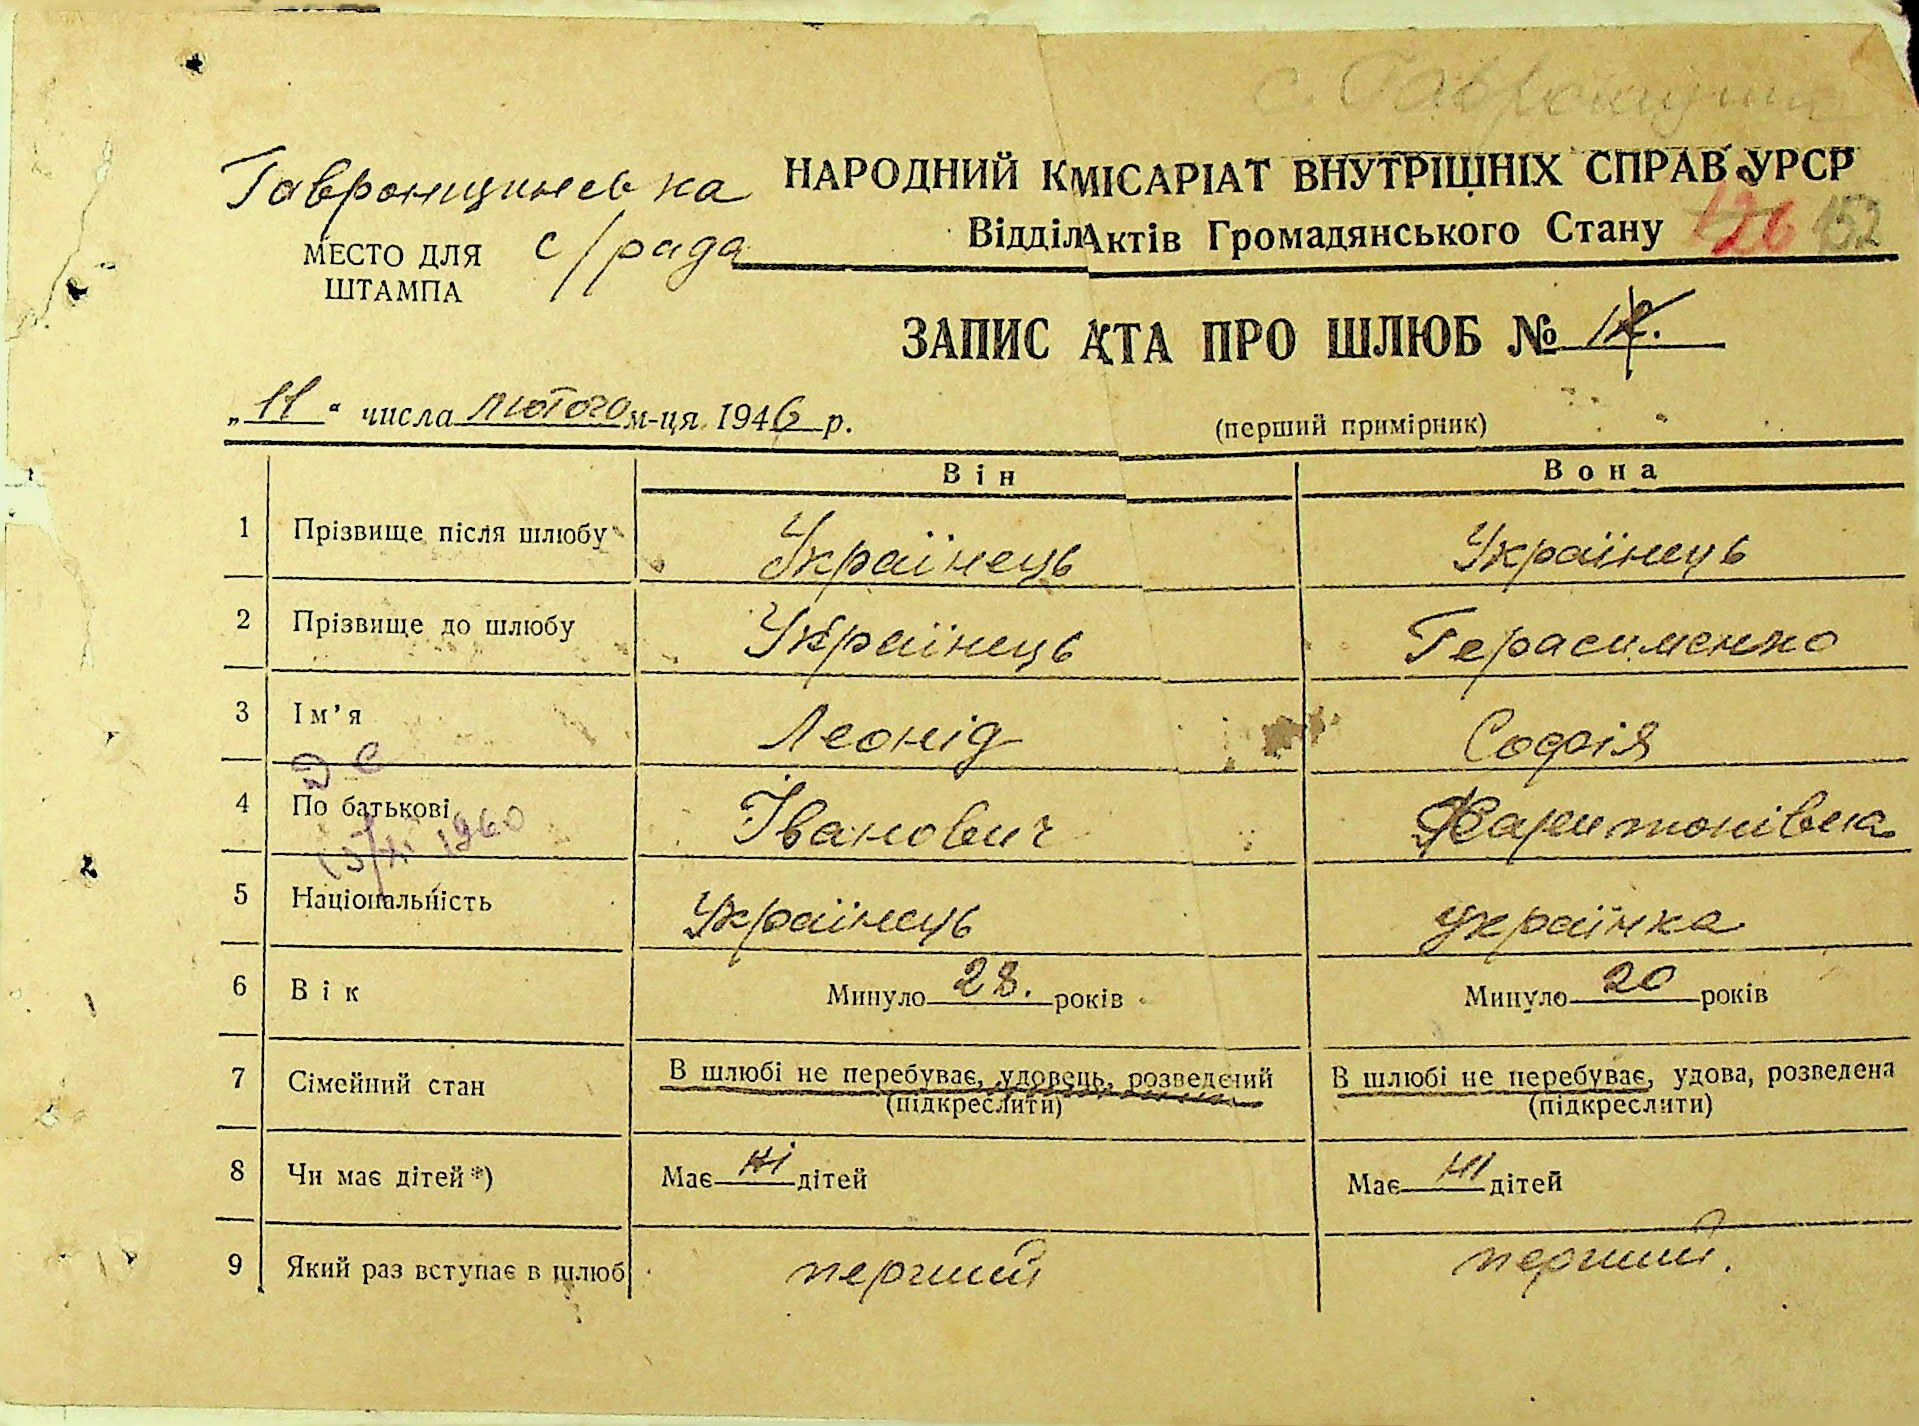 с. Гавронщина
Гавронщинська
НАРОДНИЙ КМІСАРІАТ ВНУТРІШНІХ СПРАВ УРСР
Відділ Актів Громадянського Стану 126 152
МЕСТО ДЛЯ
ШТАМПА
с/рада
ЗАПИС АКТА ПРО ШЛЮБ №
„11“ числа лютого м-ця 1946 р.
(перший примірник)
Він Вона
1 Прізвище після шлюбу Українець Українець
2 Прізвище до шлюбу Українець Герасименко
3 Ім’я Леонід Софія
4 По батькові Іванович Харитонівна
1960
5 Національність Українець українка
6 Вік Минуло 28. років Минуло 20 років
7 Сімейний стан В шлюбі не перебуває, удовець, розведений В шлюбі не перебуває, удова, розведена
(підкреслити) (підкреслити)
8 Чи має дітей*) Має ні дітей Має ні дітей
9 Який раз вступає в шлюб перший перший.